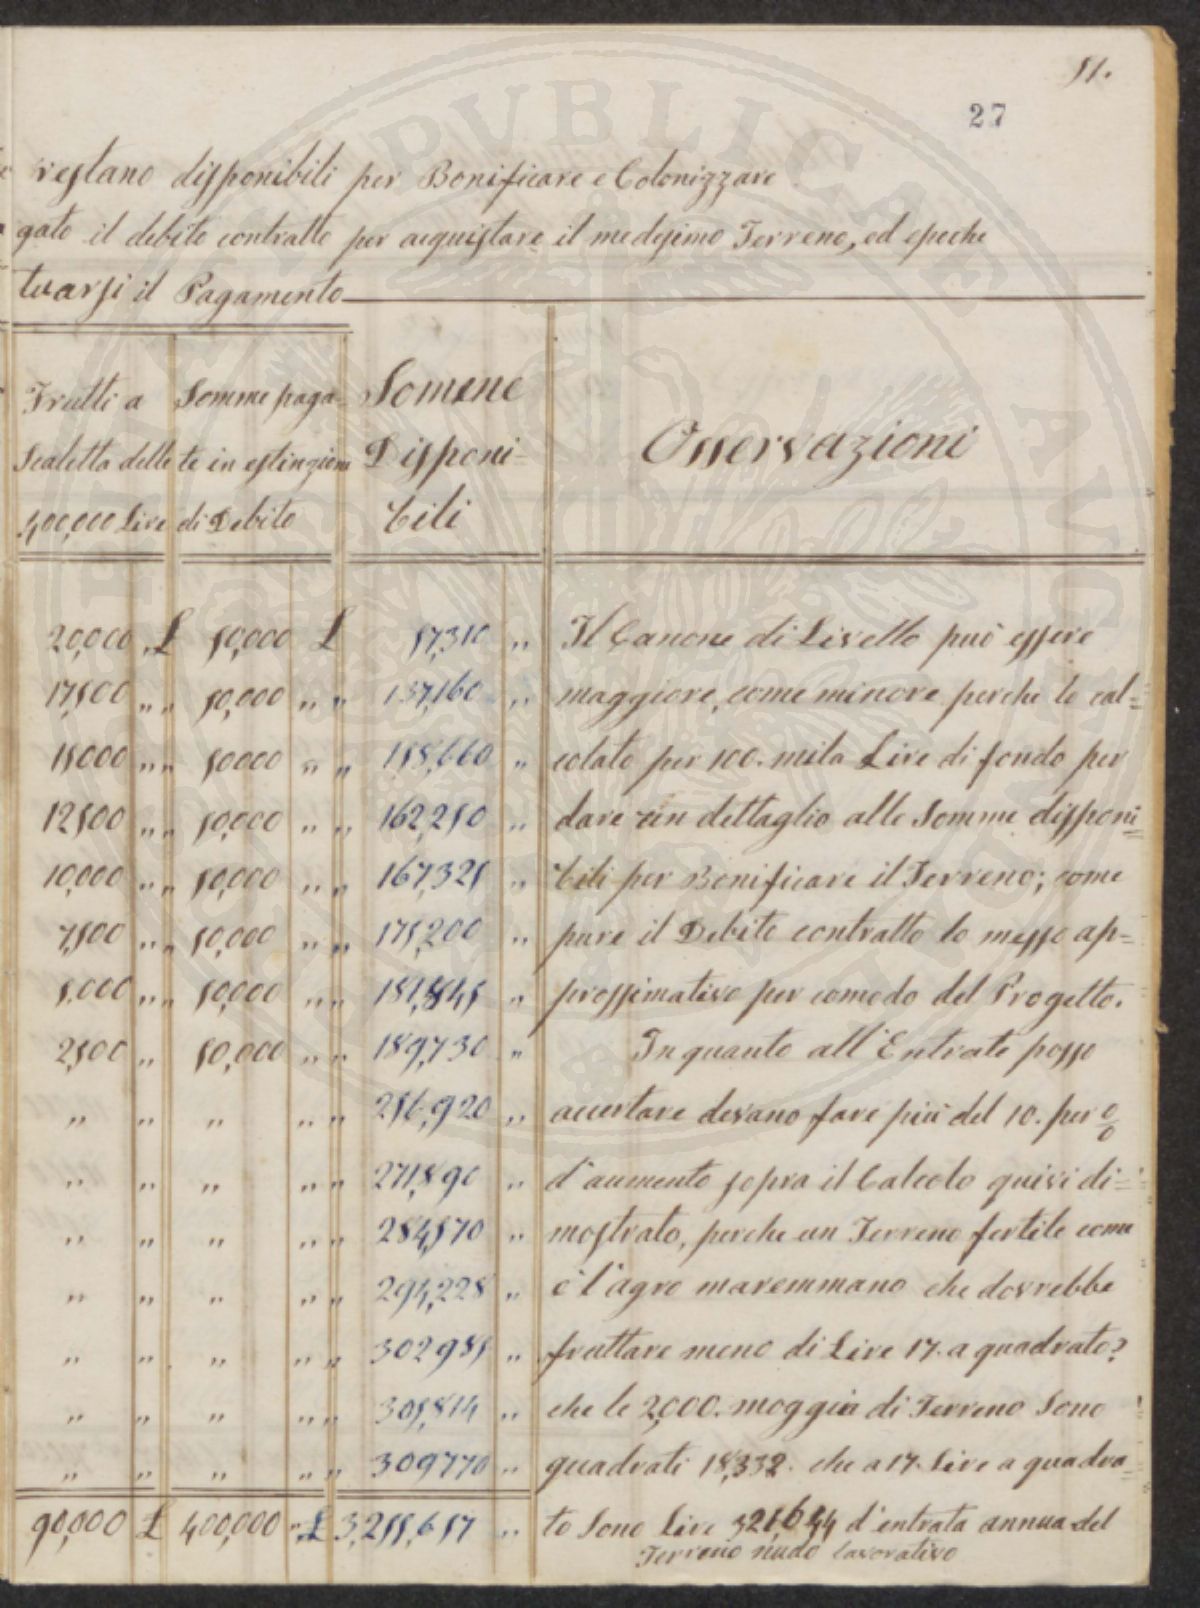 51.
27
restano disponibili per Bonificare e Colonizzare
gato il debito contratto per acquistare il medesimo Terreno, ed epoche
tuarsi il Pagamento
Frutti a Scaletta delle 400,000 Lire
Somme paga-te in estinzione di Debito
Somme Disponi-bili
Osservazioni
20,000 „ £ 50,000 £ 57,310 „ Il Canone di Livello può essere
17,500 „ „ 50,000 „ „ 137,160 „ maggiore, come minore perche lo cal=
15000 „ „ 50000 „ „ 158,660 „ colato per 100. mila Lire di fondo per
12500 „ „ 50,000 „ „ 162,250 „ dare un dettaglio alle Somme disponi=
10,000 „ „ 50,000 „ „ 167,325 „ bili per Bonificare il Terreno; come
7,500 „ „ 50,000 „ „ 175,200 „ pure il Debito contratto lo messo ap=
5.000 „ „ 50,000 „ „ 181,845 „ prossimativo per comodo del Progetto.
2,500 „ 50,000 „ „ 189,730 „ In quanto all'Entrate posso
„ „ „ „ „ 256,920 „ accertare devano fare più del 10. per %
„ „ „ „ „ 271,890 „ d'aumento sopra il Calcolo quivi di=
„ „ „ „ „ 284,570 „ mostrato, perche un Terreno fertile come
„ „ „ „ „ 294,228 „ è l'agro maremmano che dovrebbe
„ „ „ „ „ 302985 „ fruttare meno di Lire 17. a quadrato?
„ „ „ „ „ 305,814 „ che le 2,000. moggia di Terreno Sono
„ „ „ „ „ 309770 „ quadrati 18,332. che a 17. Lire a quadra=
90,000 £ 400,000 „ £ 3,255,657 „ to Sono Lire 321,644 d'entrata annua del
Terreno nudo lavorativo